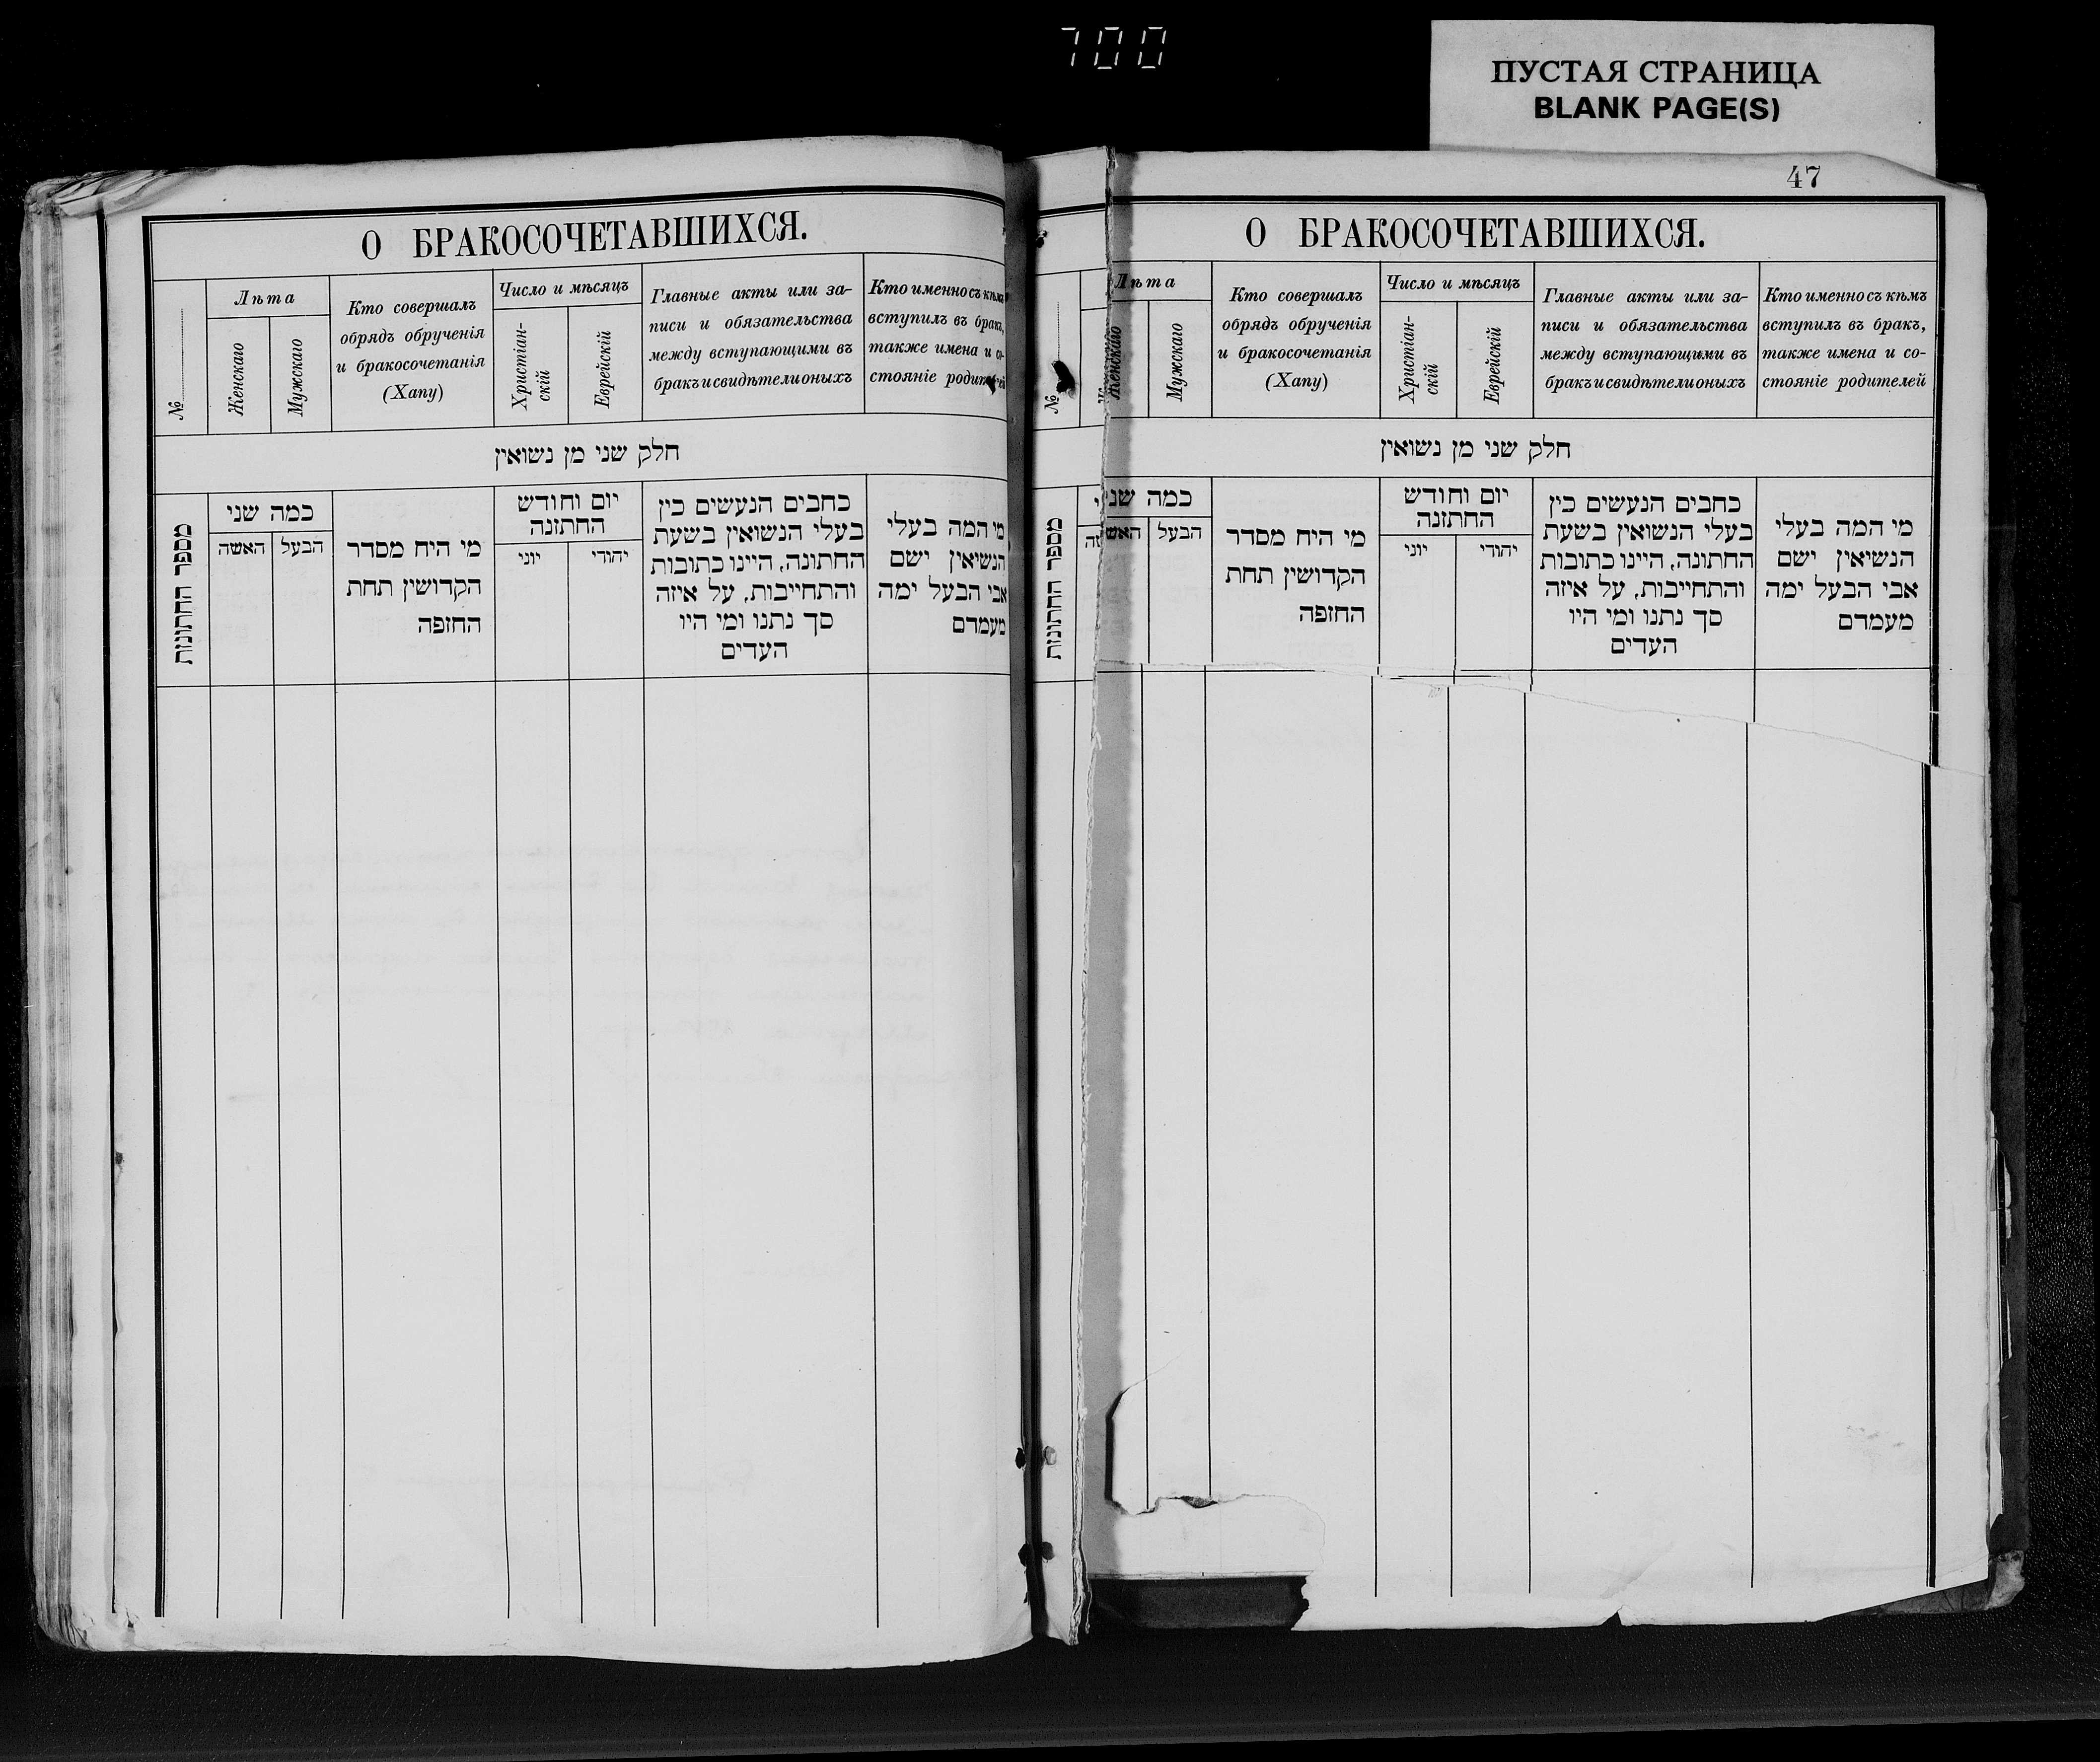 700
ПУСТАЯ СТРАНИЦА
BLANK PAGE(S)
О БРАКОСОЧЕТАВШИХСЯ.
№
Лѣта
Женскаго
Мужскаго
Кто совершалъ
обрядъ обрученія
и бракосочетанія
(Хапу)
Число и мѣсяцъ
Христіан-
скій
Еврейскій
Главные акты или за-
писи и обязательства
между вступающими въ
бракъ и свидѣтели оныхъ
Кто именно съ кѣмъ
вступилъ въ бракъ,
также имена и со-
стояніе родителей
חלק שני מן נשואין
מספר החתונות
כמה שני
האשה
הבעל
מי היח מסדר
הקדושין תחת
החזפה
יום וחודש
החתזנה
יוני
יהודי
כחבים הנעשים כין
בעלי הנשואין בשעת
החתונה, היינו כתובות
והתחייבות, על איזה
סך נתנו ומי היו
העדים
מי המה בעלי
הנשיאין ישם
אבי הבעל ימה
מעמדם
47
О БРАКОСОЧЕТАВШИХСЯ.
№
Лѣта
Женскаго
Мужскаго
Кто совершалъ
обрядъ обрученія
и бракосочетанія
(Хапу)
Число и мѣсяцъ
Христіан-
скій
Еврейскій
Главные акты или за-
писи и обязательства
между вступающими въ
бракъ и свидѣтели оныхъ
Кто именно съ кѣмъ
вступилъ въ бракъ,
также имена и со-
стояніе родителей
חלק שני מן נשואין
מספר החתונות
כמה שני
האשה
הבעל
מי היח מסדר
הקדושין תחת
החזפה
יום וחודש
החתזנה
יוני
יהודי
כחבים הנעשים כין
בעלי הנשואין בשעת
החתונה, היינו כתובות
והתחייבות, על איזה
סך נתנו ומי היו
העדים
מי המה בעלי
הנשיאין ישם
אבי הבעל ימה
מעמדם